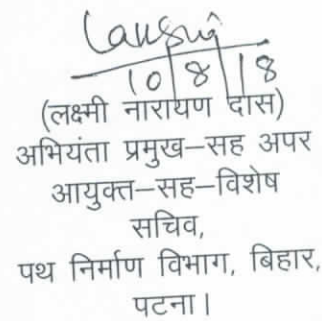 10/8/18
(लक्ष्मी नारायण दास)
अभियंता प्रमुख–सह अपर
आयुक्त–सह–विशेष
सचिव,
पथ निर्माण विभाग, बिहार,
पटना।